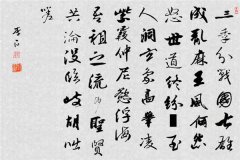 三季分戰國七雄
成亂麻王風何怨
怒世道終紛拏至
人洞玄象高舉凌
紫霞仲尼欲浮海
吾祖之流沙聖賢
共淪沒臨岐胡咄
嗟